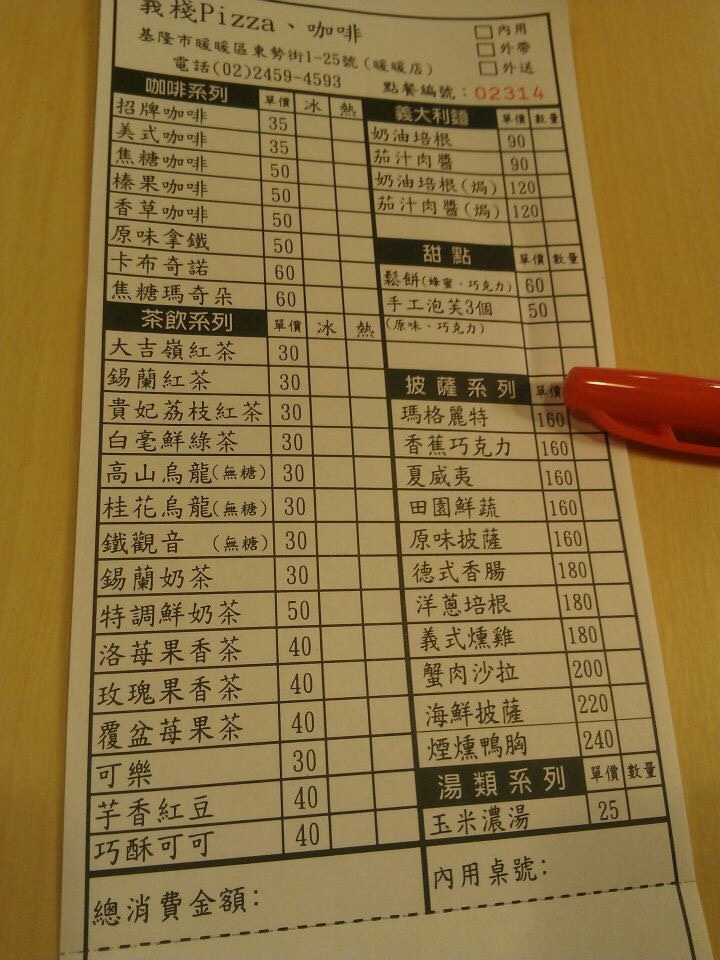 義棧Pizza、咖啡
基隆市暖暖區東勢街1-25號(暖暖店)
電話(02)2459-4593
內用
外帶
外送
點餐編號:02314
咖啡系列 單價 冰 熱
招牌咖啡 35
美式咖啡 35
焦糖咖啡 50
榛果咖啡 50
香草咖啡 50
原味拿鐵 50
卡布奇諾 60
焦糖瑪奇朵 60
茶飲系列 單價 冰 熱
大吉嶺紅茶 30
錫蘭紅茶 30
貴妃荔枝紅茶 30
白毫鮮綠茶 30
高山烏龍(無糖) 30
桂花烏龍(無糖) 30
鐵觀音 (無糖) 30
錫蘭奶茶 30
特調鮮奶茶 50
洛莓果香茶 40
玫瑰果香茶 40
覆盆莓果茶 40
可樂 30
芋香紅豆 40
巧酥可可 40
總消費金額:
義大利麵 單價 數量
奶油培根 90
茄汁肉醬 90
奶油培根(焗) 120
茄汁肉醬(焗) 120
甜點 單價 數量
鬆餅(蜂蜜、巧克力) 60
手工泡芙3個 50
(原味、巧克力)
披薩系列 單價
瑪格麗特 160
香蕉巧克力 160
夏威夷 160
田園鮮蔬 160
原味披薩 160
德式香腸 180
洋蔥培根 180
義式燻雞 180
蟹肉沙拉 200
海鮮披薩 220
煙燻鴨胸 240
湯類系列 單價 數量
玉米濃湯 25
內用桌號: